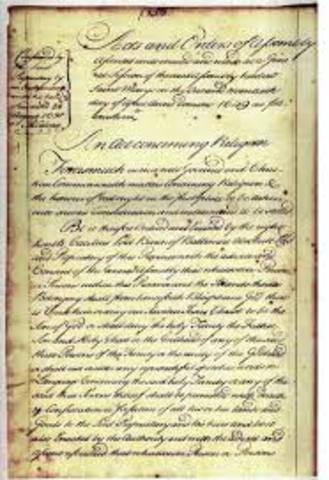 Confirmed by
Proprietary by
Acts and Orders of Assembly
assented unto enacted and made at a Gene
Session of the said Assembly held at
Saint Maries on the
day of Aprill Anno Domini 1649 as fol
loweth
An act concerning Religion
Forasmuch as in a well governed and Chris
tian Commonwealth matters Concerning Religion &
the honour of God ought in the first place to be taken
into serious Consideration and endeavoured to be settled
Be it therefore Ordered and Enacted by the right
hono^ble Cecilius Lord Baron of Baltemore absolute Lord
and Proprietary of this Province with the advice and
Consent of this Generall Assembly that whatsoever Person
or Persons within this Province and the Islands thereto
Belonging shall from henceforth Blaspheme God that
is Curse him or deny our Saviour Jesus Christ to be the
Son of God or shall deny the holy Trinity the Father
Son and Holy Ghost or the Godhead of any of the said
three Persons of the Trinity or the unity of the Godhead
or shall use or utter any reproachful Speeches words or
Language Concerning the said holy Trinity or any of the
said three Persons thereof shall be punished with Death
& Confiscation or forfeiture of all his or her Lands and
Goods to the Lord Proprietary and his heirs And be it
also Enacted by the Authority and with the advice and
assent aforesaid that whatsoever Person or Persons